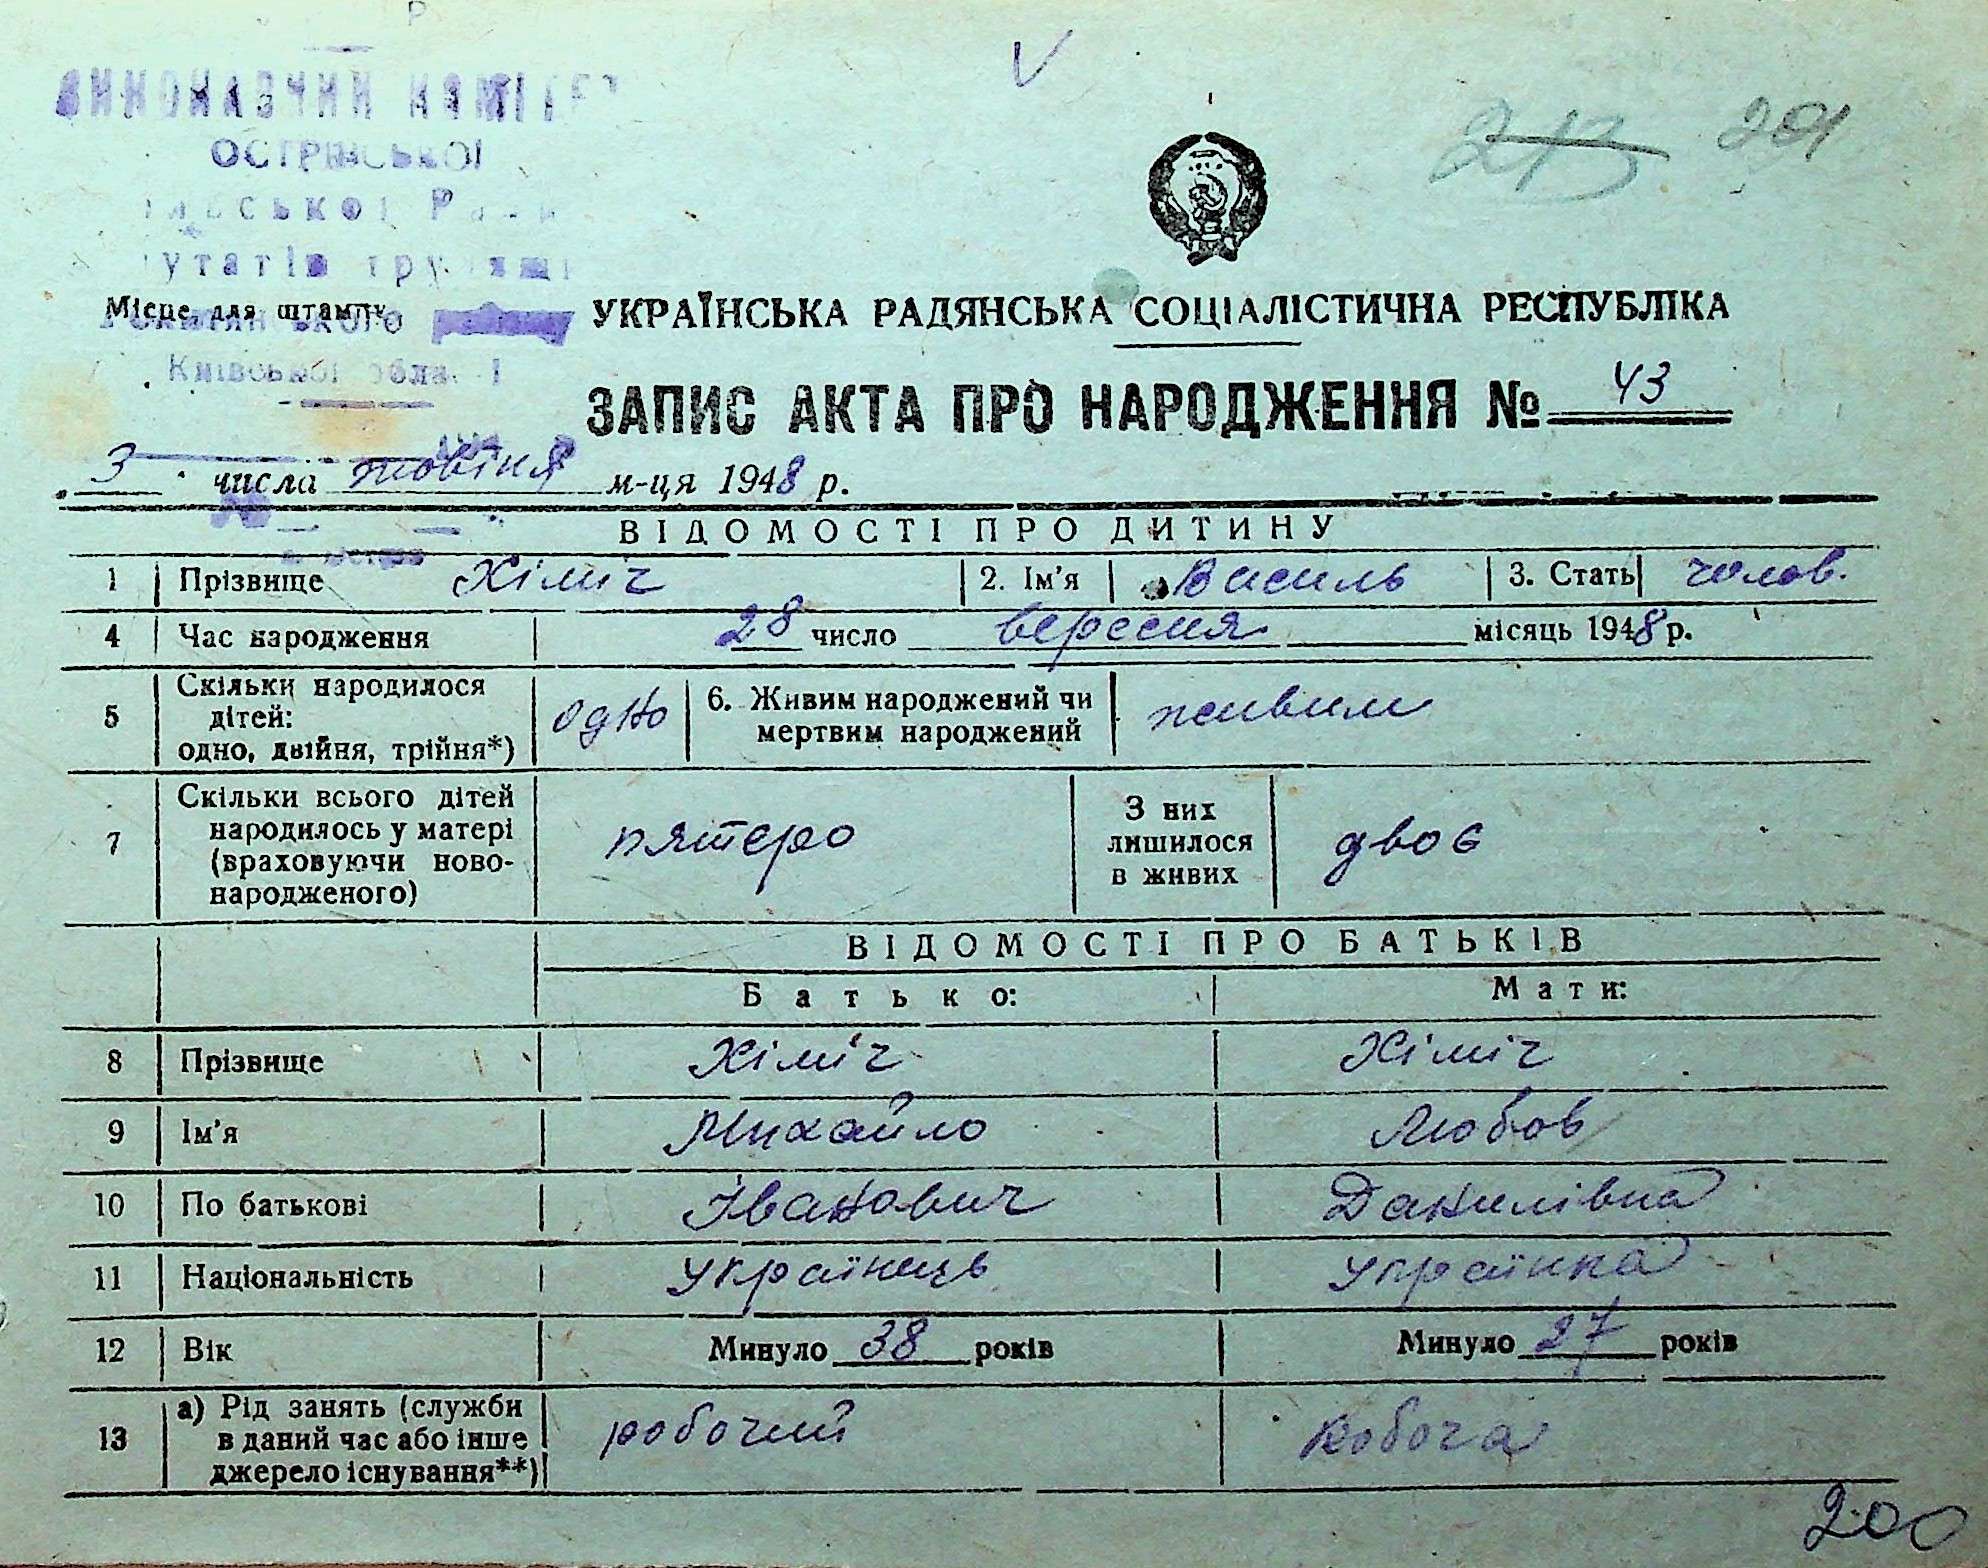 ВИКОНАВЧИЙ КОМІТЕТ
ОСТРІВСЬКОЇ
Київської області
Місце для штампу
213 201
УКРАЇНСЬКА РАДЯНСЬКА СОЦІАЛІСТИЧНА РЕСПУБЛІКА
ЗАПИС АКТА ПРО НАРОДЖЕННЯ № 43
3 числа жовтня м-ця 1948 р.
ВІДОМОСТІ ПРО ДИТИНУ
1 Прізвище Хіміч 2. Ім'я Василь 3. Стать чолов.
4 Час народження 28 число вересня місяць 1948 р.
5 Скільки народилося дітей: одно, двійня, трійня*) одно 6. Живим народжений чи мертвим народжений живим
7 Скільки всього дітей народилось у матері (враховуючи ново-народженого) пятеро З них лишилося в живих двоє
ВІДОМОСТІ ПРО БАТЬКІВ
Батько: Мати:
8 Прізвище Хіміч Хіміч
9 Ім'я Михайло Любов
10 По батькові Іванович Данилівна
11 Національність Українець Українка
12 Вік Минуло 38 років Минуло 27 років
13 а) Рід занять (служби в даний час або інше джерело існування**) робочий робоча
200